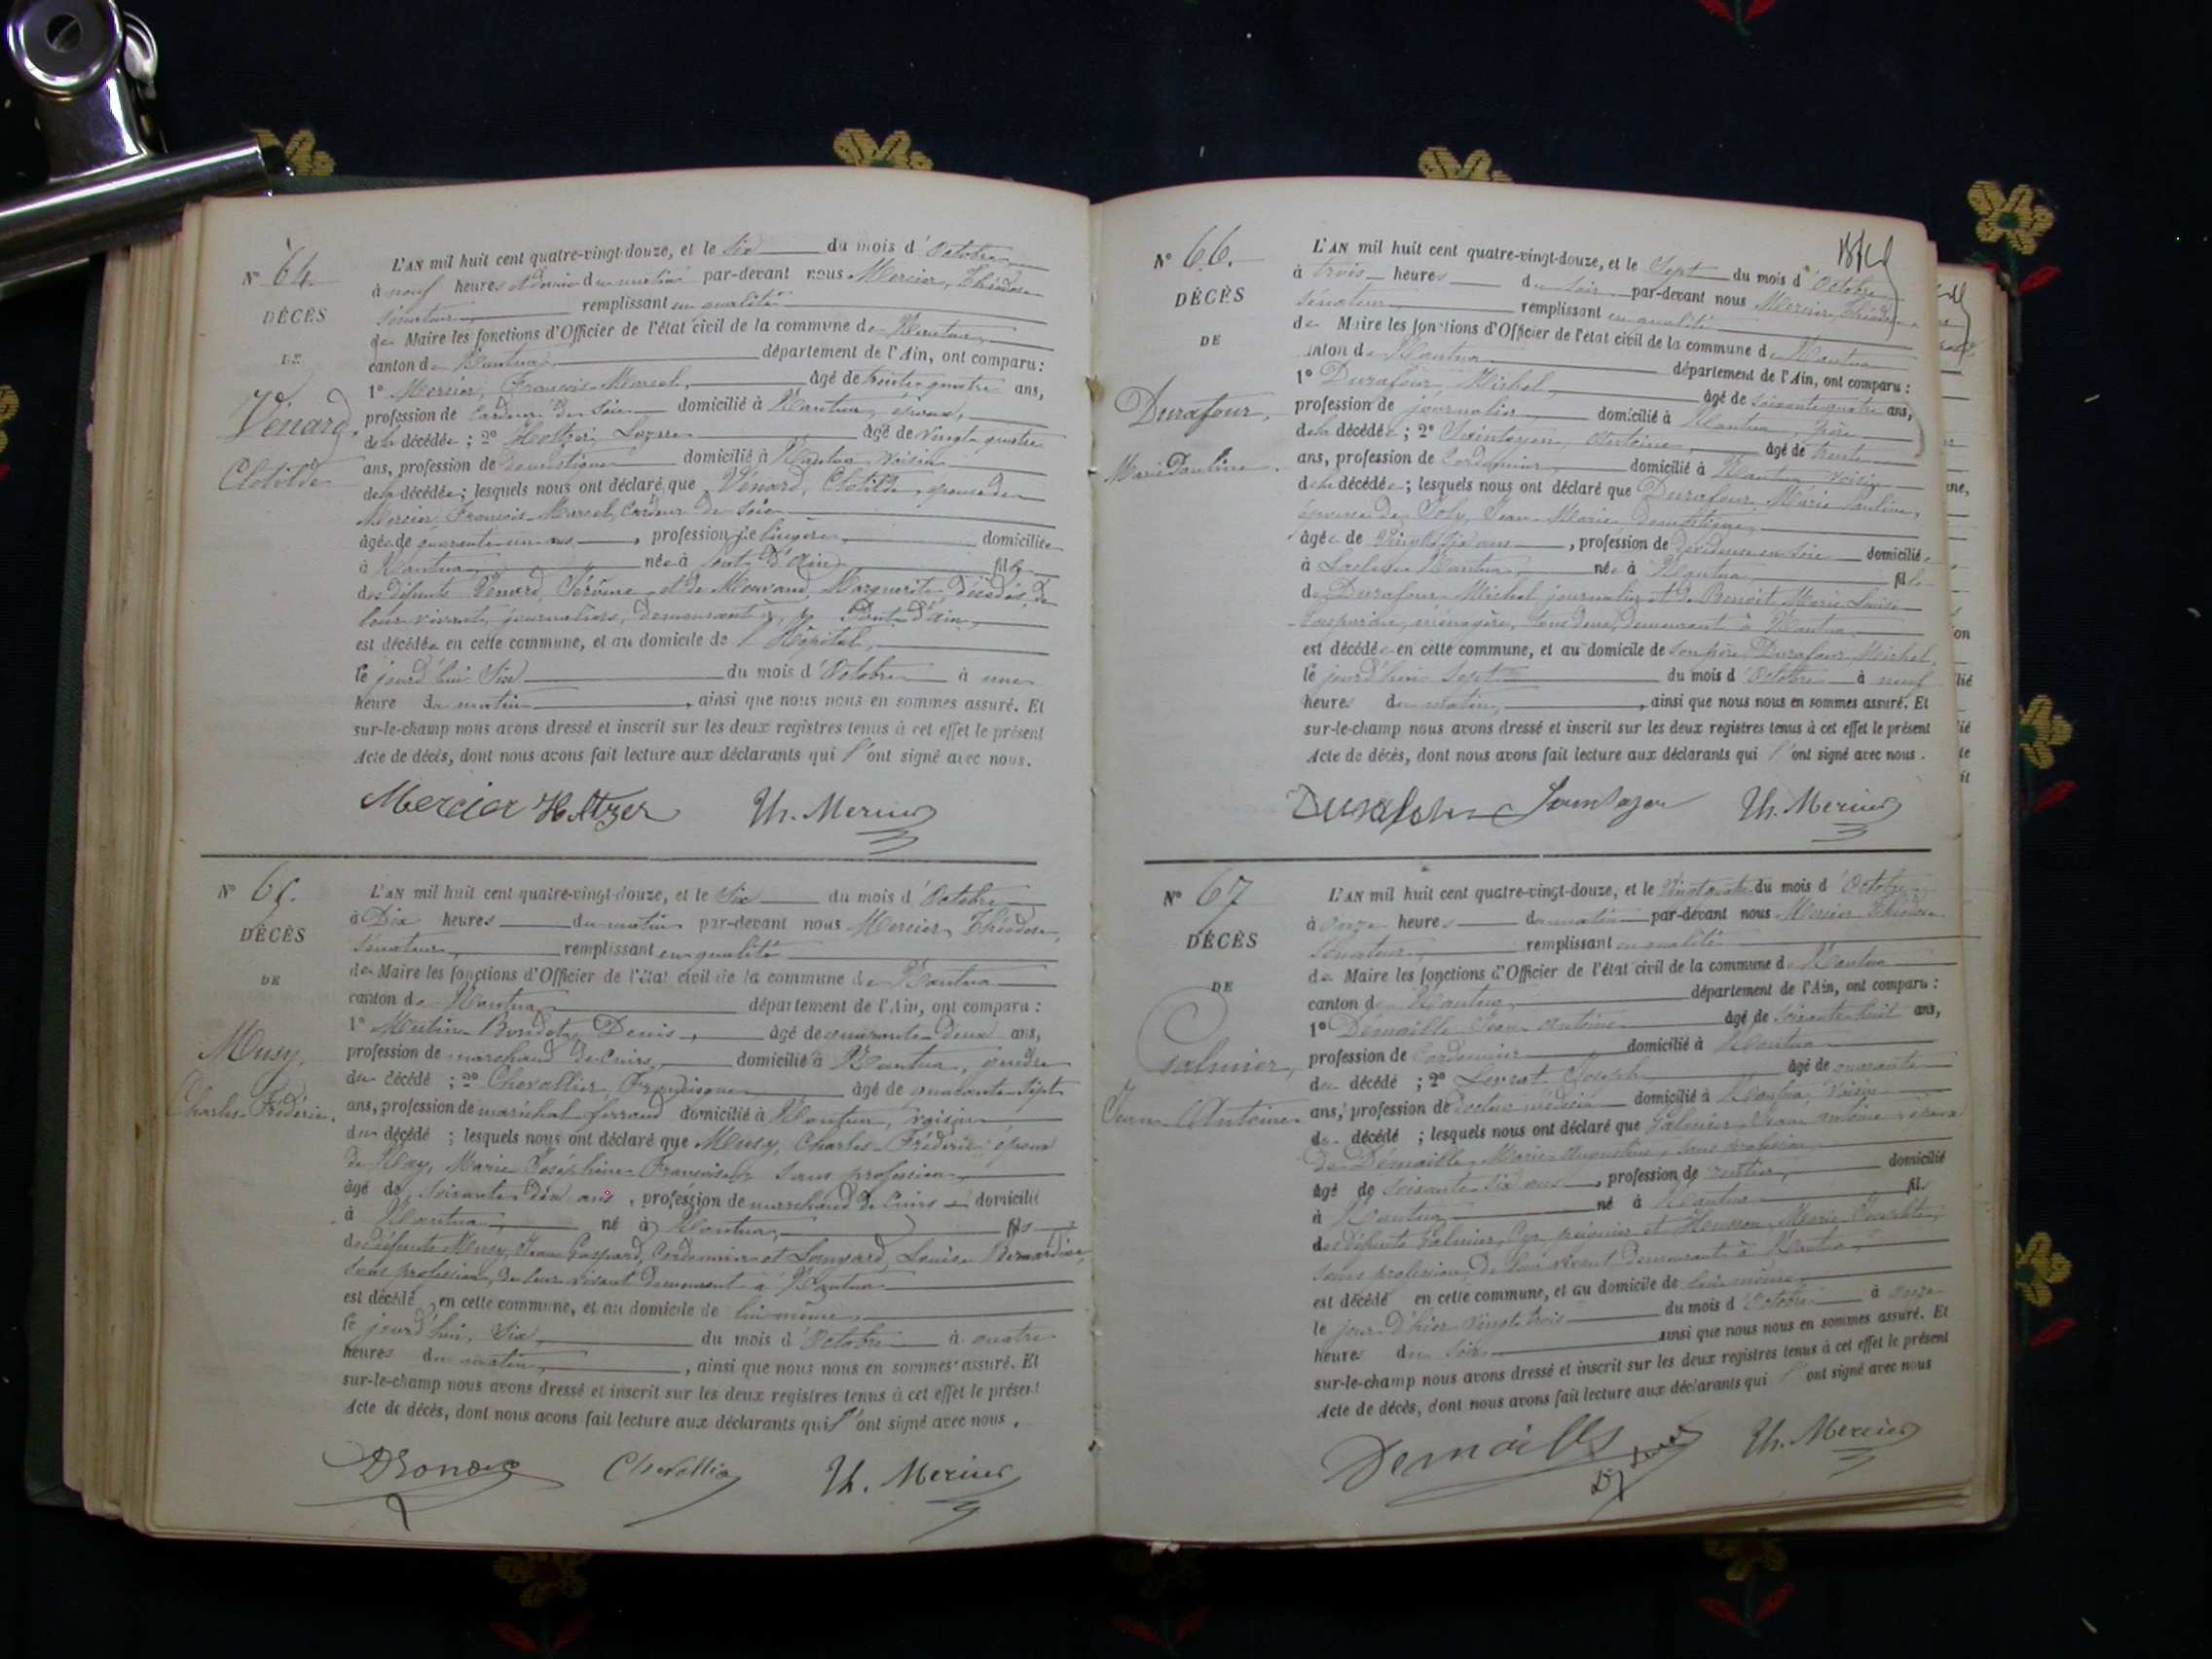 N° 64.
DÉCÈS
DE
Vénard,
Clotilde
L'AN mil huit cent quatre-vingt-douze, et le Six du mois d'Octobre
à neuf heures et demie du matin par-devant nous Mercier, Théodore
sénateur, remplissant en qualité
de Maire les fonctions d'Officier de l'état civil de la commune de Nantua,
canton de Nantua, département de l'Ain, ont comparu :
1° Mercier, François-Marcel, âgé de trente-quatre ans,
profession de Cardeur de Soie domicilié à Nantua, époux,
de la décédée ; 2° Holtzer, âgé de vingt-quatre
ans, profession de domestique domicilié à Nantua, voisin
de la décédée ; lesquels nous ont déclaré que Vénard, Clotilde, épouse de
Mercier, François-Marcel, Cardeur de Soie
âgée de quarante-un ans, profession de lingère domiciliée
à Nantua, née à Pont-d'Ain fille
des défunts Vénard, Jérôme et de Morand, Marguerite, décédés, de
leur vivant, journaliers, demeurant à Pont-d'Ain,
est décédée en cette commune, et au domicile de l'Hôpital,
le jourd'hui Six du mois d'Octobre à une
heure du matin, ainsi que nous nous en sommes assuré. Et
sur-le-champ nous avons dressé et inscrit sur les deux registres tenus à cet effet le présent
Acte de décès, dont nous avons fait lecture aux déclarants qui l'ont signé avec nous.
Mercier Holtzer Th. Mercier
N° 65.
DÉCÈS
DE
Musy,
Charles-Frédéric.
L'AN mil huit cent quatre-vingt-douze, et le Six du mois d'Octobre
à Dix heures du matin par-devant nous Mercier, Théodore,
Sénateur, remplissant en qualité
de Maire les fonctions d'Officier de l'état civil de la commune de Nantua
canton de Nantua, département de l'Ain, ont comparu :
1° Denis, âgé de quarante-deux ans,
profession de marchand de Cuirs, domicilié à Nantua, gendre
du décédé ; 2° Chevallier, Françisque âgé de quarante-Sept
ans, profession de maréchal ferrand domicilié à Nantua, voisin
du décédé ; lesquels nous ont déclaré que Musy, Charles-Frédéric, époux
de May, Marie-Joséphine-Françoise, Sans profession,
âgé de soixante-dix ans, profession de marchand de Cuirs domicilié
à Nantua, né à Nantua, fils
des défunts Musy, Jean-Gaspard, Cordonnier et Louise Bernardine,
sans profession, de leur vivant demeurant à Nantua
est décédé, en cette commune, et au domicile de lui-même,
le jourd'hui, Six du mois d'Octobre à quatre
heures du matin, ainsi que nous nous en sommes assuré. Et
sur-le-champ nous avons dressé et inscrit sur les deux registres tenus à cet effet le présent
Acte de décès, dont nous avons fait lecture aux déclarants qui l'ont signé avec nous.
Chevallier Th. Mercier
N° 66.
DÉCÈS
DE
Durafour,
Marie Pauline.
L'AN mil huit cent quatre-vingt-douze, et le Sept du mois d'Octobre
à trois heures du Soir par-devant nous Mercier, Théodore
Sénateur, remplissant en qualité
de Maire les fonctions d'Officier de l'état civil de la commune de Nantua
canton de Nantua département de l'Ain, ont comparu :
1° Durafour, Michel, âgé de soixante-quatre ans,
profession de journalier, domicilié à Nantua, Père
de la décédée ; 2° Antoine, âgé de trente
ans, profession de Cordonnier, domicilié à Nantua, voisin
de la décédée ; lesquels nous ont déclaré que Durafour, Marie Pauline,
épouse de Joly, Jean-Marie, domestique,
âgée de Vingt-six ans, profession de dévideuse en soie domiciliée
à Nantua, née à Nantua, fille
de Durafour, Michel journalier et de Benoît, Marie-Louise
ménagère, tous deux demeurant à Nantua
est décédée en cette commune, et au domicile de son père, Durafour, Michel,
le jourd'hui Sept du mois d'Octobre à neuf
heures du matin, ainsi que nous nous en sommes assuré. Et
sur-le-champ nous avons dressé et inscrit sur les deux registres tenus à cet effet le présent
Acte de décès, dont nous avons fait lecture aux déclarants qui l'ont signé avec nous.
Durafour Th. Mercier
N° 67
DÉCÈS
DE
Galmier,
Jean-Antoine
L'AN mil huit cent quatre-vingt-douze, et le Vingt-quatre du mois d'Octobre
à onze heures du matin par-devant nous Mercier, Théodore
Sénateur, remplissant en qualité
de Maire les fonctions d'Officier de l'état civil de la commune de Nantua
canton de Nantua, département de l'Ain, ont comparu :
1° Démaille, Jean-Antoine âgé de soixante-huit ans,
profession de Cordonnier domicilié à Nantua
du décédé ; 2° Levrat, Joseph, âgé de quarante
ans, profession de docteur médecin domicilié à Nantua, voisin
du décédé ; lesquels nous ont déclaré que Galmier, Jean-Antoine, époux
de Démaille, Marie-Augustine, sans profession
âgé de soixante-six ans, profession de rentier, domicilié
à Nantua né à Nantua fils
des défunts Galmier, et Marie
sans profession, de leur vivant demeurant à Nantua
est décédé en cette commune, et au domicile de lui-même,
le jour d'hier vingt-trois du mois d'Octobre à onze
heures du Soir ainsi que nous nous en sommes assuré. Et
sur-le-champ nous avons dressé et inscrit sur les deux registres tenus à cet effet le présent
Acte de décès, dont nous avons fait lecture aux déclarants qui l'ont signé avec nous
Demaille Th. Mercier